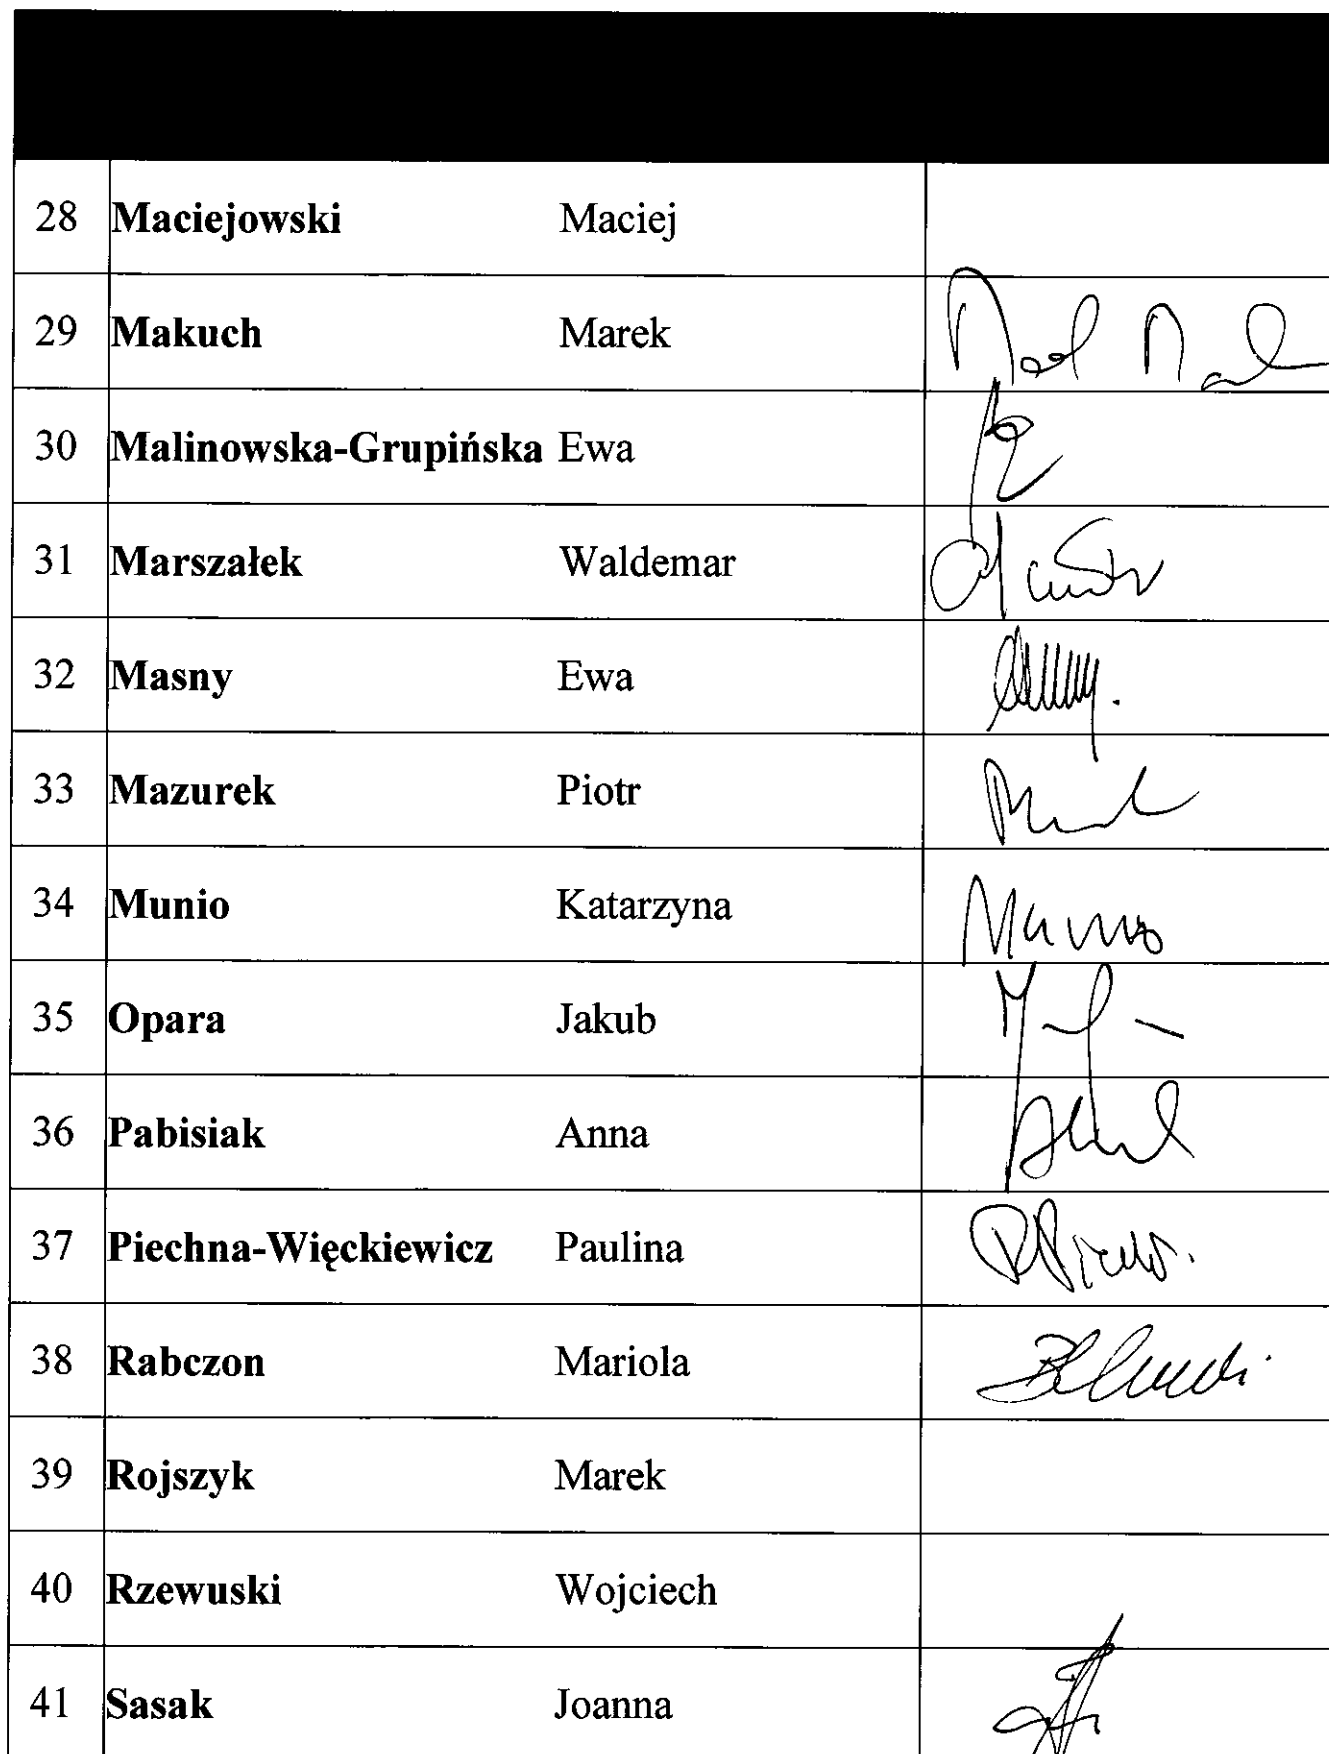 28 Maciejowski Maciej
29 Makuch Marek
30 Malinowska-Grupińska Ewa
31 Marszałek Waldemar
32 Masny Ewa
33 Mazurek Piotr
34 Munio Katarzyna
35 Opara Jakub
36 Pabisiak Anna
37 Piechna-Więckiewicz Paulina
38 Rabczon Mariola
39 Rojszyk Marek
40 Rzewuski Wojciech
41 Sasak Joanna